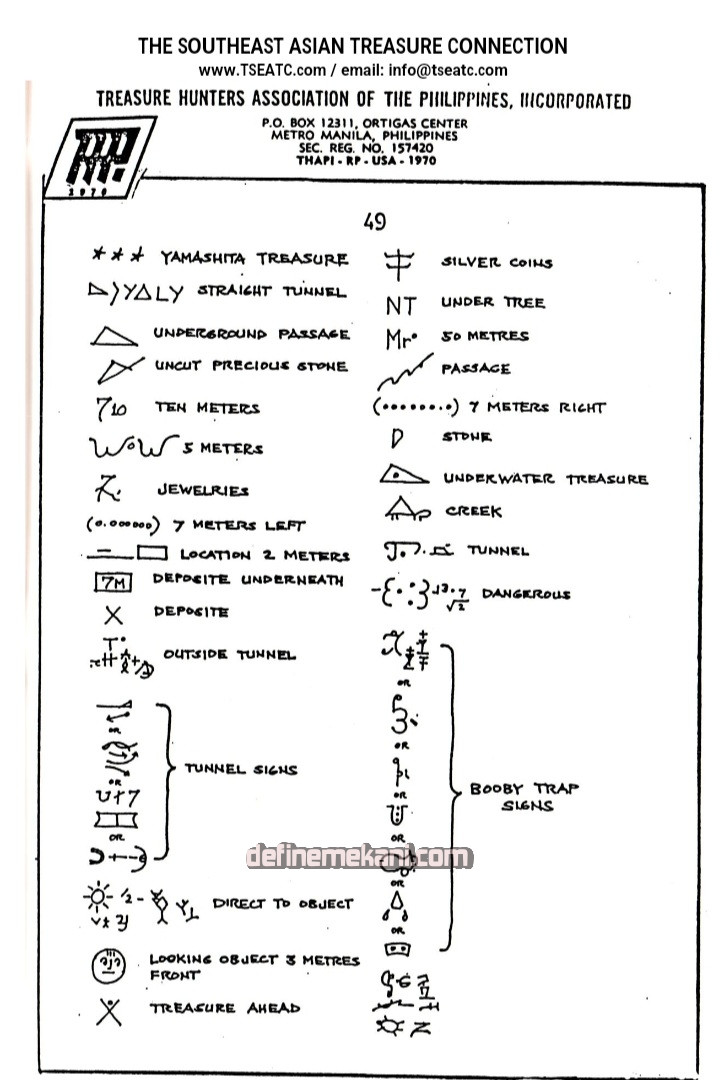 THE SOUTHEAST ASIAN TREASURE CONNECTION
www.TSEATC.com / email: info@tseatc.com
TREASURE HUNTERS ASSOCIATION OF THE PHILIPPINES, INCORPORATED
P.O. BOX 12311, ORTIGAS CENTER
METRO MANILA, PHILIPPINES
SEC. REG. NO. 157420
THAPI - RP - USA - 1970
1970
49
* * * YAMASHITA TREASURE
STRAIGHT TUNNEL
UNDERGROUND PASSAGE
UNCUT PRECIOUS STONE
710 TEN METERS
WOW 5 METERS
JEWELRIES
(0.000000) 7 METERS LEFT
LOCATION 2 METERS
7M DEPOSITE UNDERNEATH
X DEPOSITE
OUTSIDE TUNNEL
OR
OR
OR
TUNNEL SIGNS
DIRECT TO OBJECT
LOOKING OBJECT 3 METRES
FRONT
TREASURE AHEAD
SILVER COINS
NT UNDER TREE
Mr° 50 METRES
PASSAGE
(........) 7 METERS RIGHT
D STONE
UNDERWATER TREASURE
CREEK
TUNNEL
DANGEROUS
OR
OR
OR
OR
OR
OR
BOOBY TRAP
SIGNS
definemekani.com